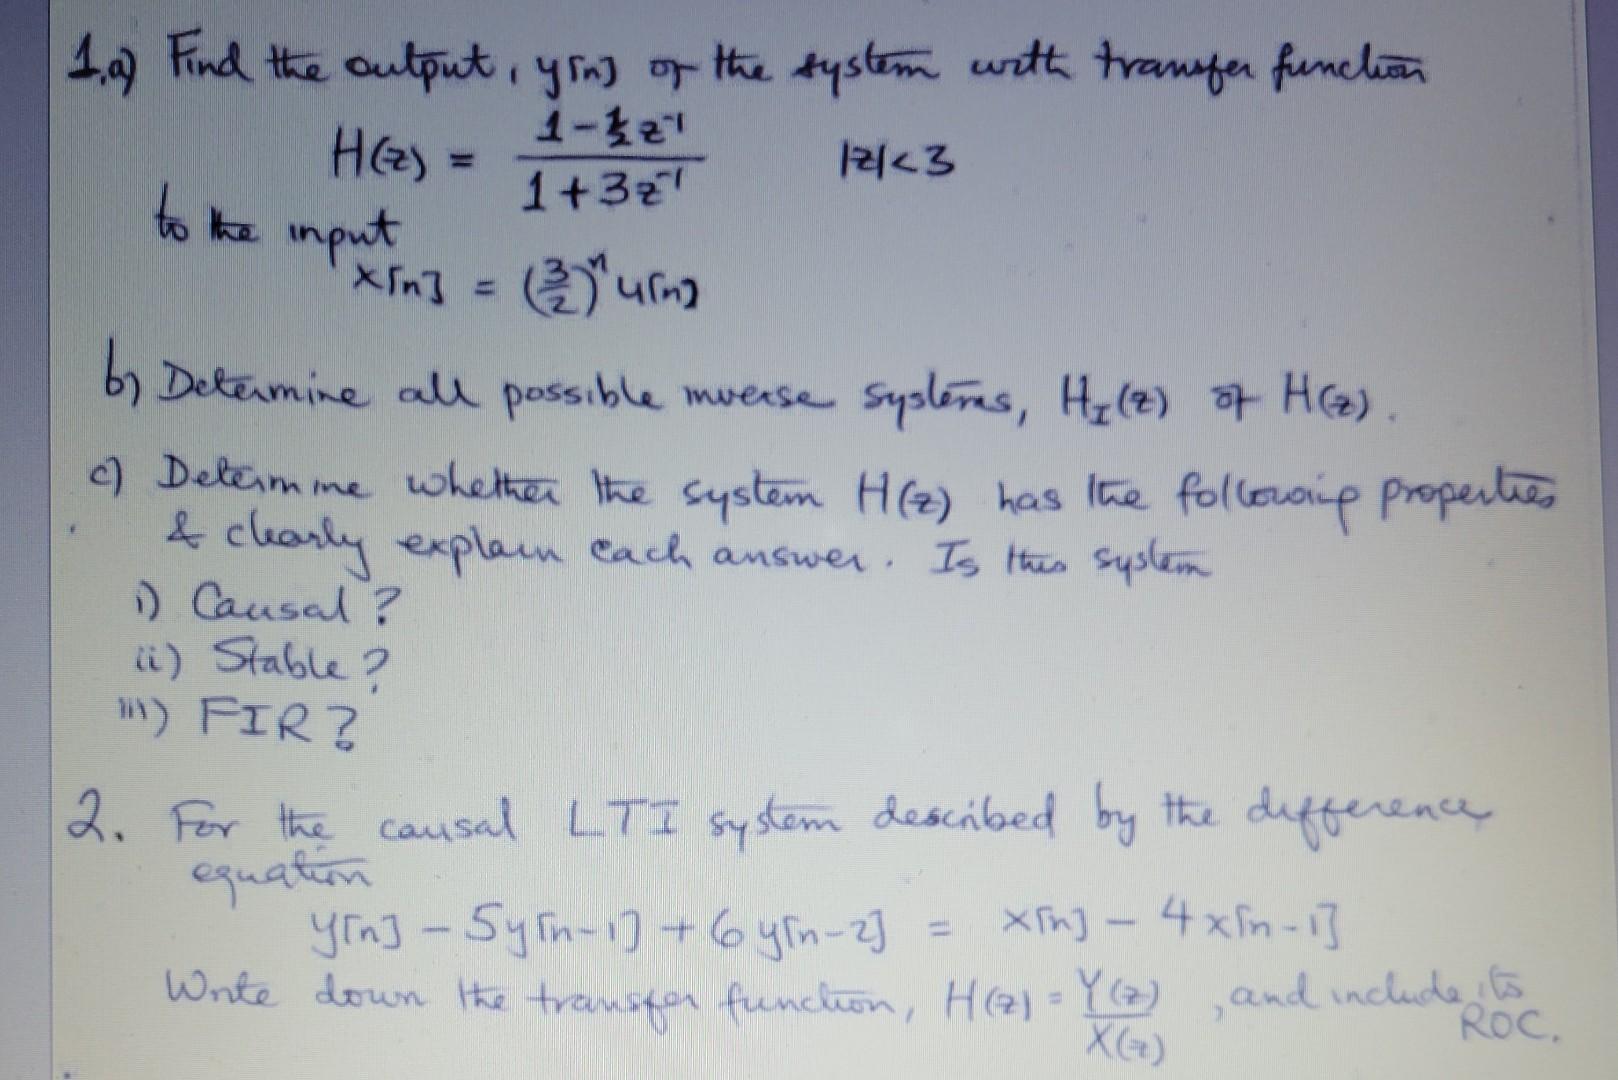 1.a) Find the output, y[n] of the system with transfer function
H(z) = (1 - ½ z⁻¹) / (1 + 3z⁻¹) |z| < 3
to the input
x[n] = (3/2)ⁿ u[n]
b) Determine all possible inverse systems, H_I(z) of H(z).
c) Determine whether the system H(z) has the following properties
& clearly explain each answer. Is this system
i) Causal?
ii) Stable?
iii) FIR?
2. For the causal LTI system described by the difference
equation
y[n] - 5y[n-1] + 6y[n-2] = x[n] - 4x[n-1]
Write down the transfer function, H(z) = Y(z)/X(z), and include its
ROC.